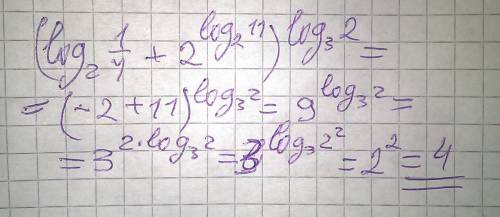 (log₂ 1/4 + 2^(log₂ 11))^(log₃ 2) =
= (-2 + 11)^(log₃ 2) = 9^(log₃ 2) =
= 3^(2·log₃ 2) = 3^(log₃ 2²) = 2² = 4